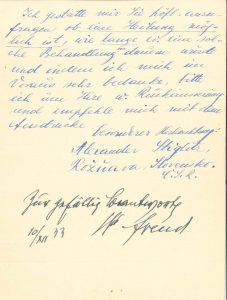 Ich gestatte mir Sie höfl. anzu-
fragen ob eine Heilung mög-
lich ist, wie lange so eine sol-
che Behandlung dauern würde
und indem ich mich im
Voraus sehr bedanke, bitte
ich um Ihre w. Rückäusserung
und empfehle mich mit dem
Ausdrucke
vorzüglicher Hochachtung:
Alexander
Rožňava, Slovensko.
Č.S.R.
Zur gefälligen Beantwortung
10/XII 33 Freud